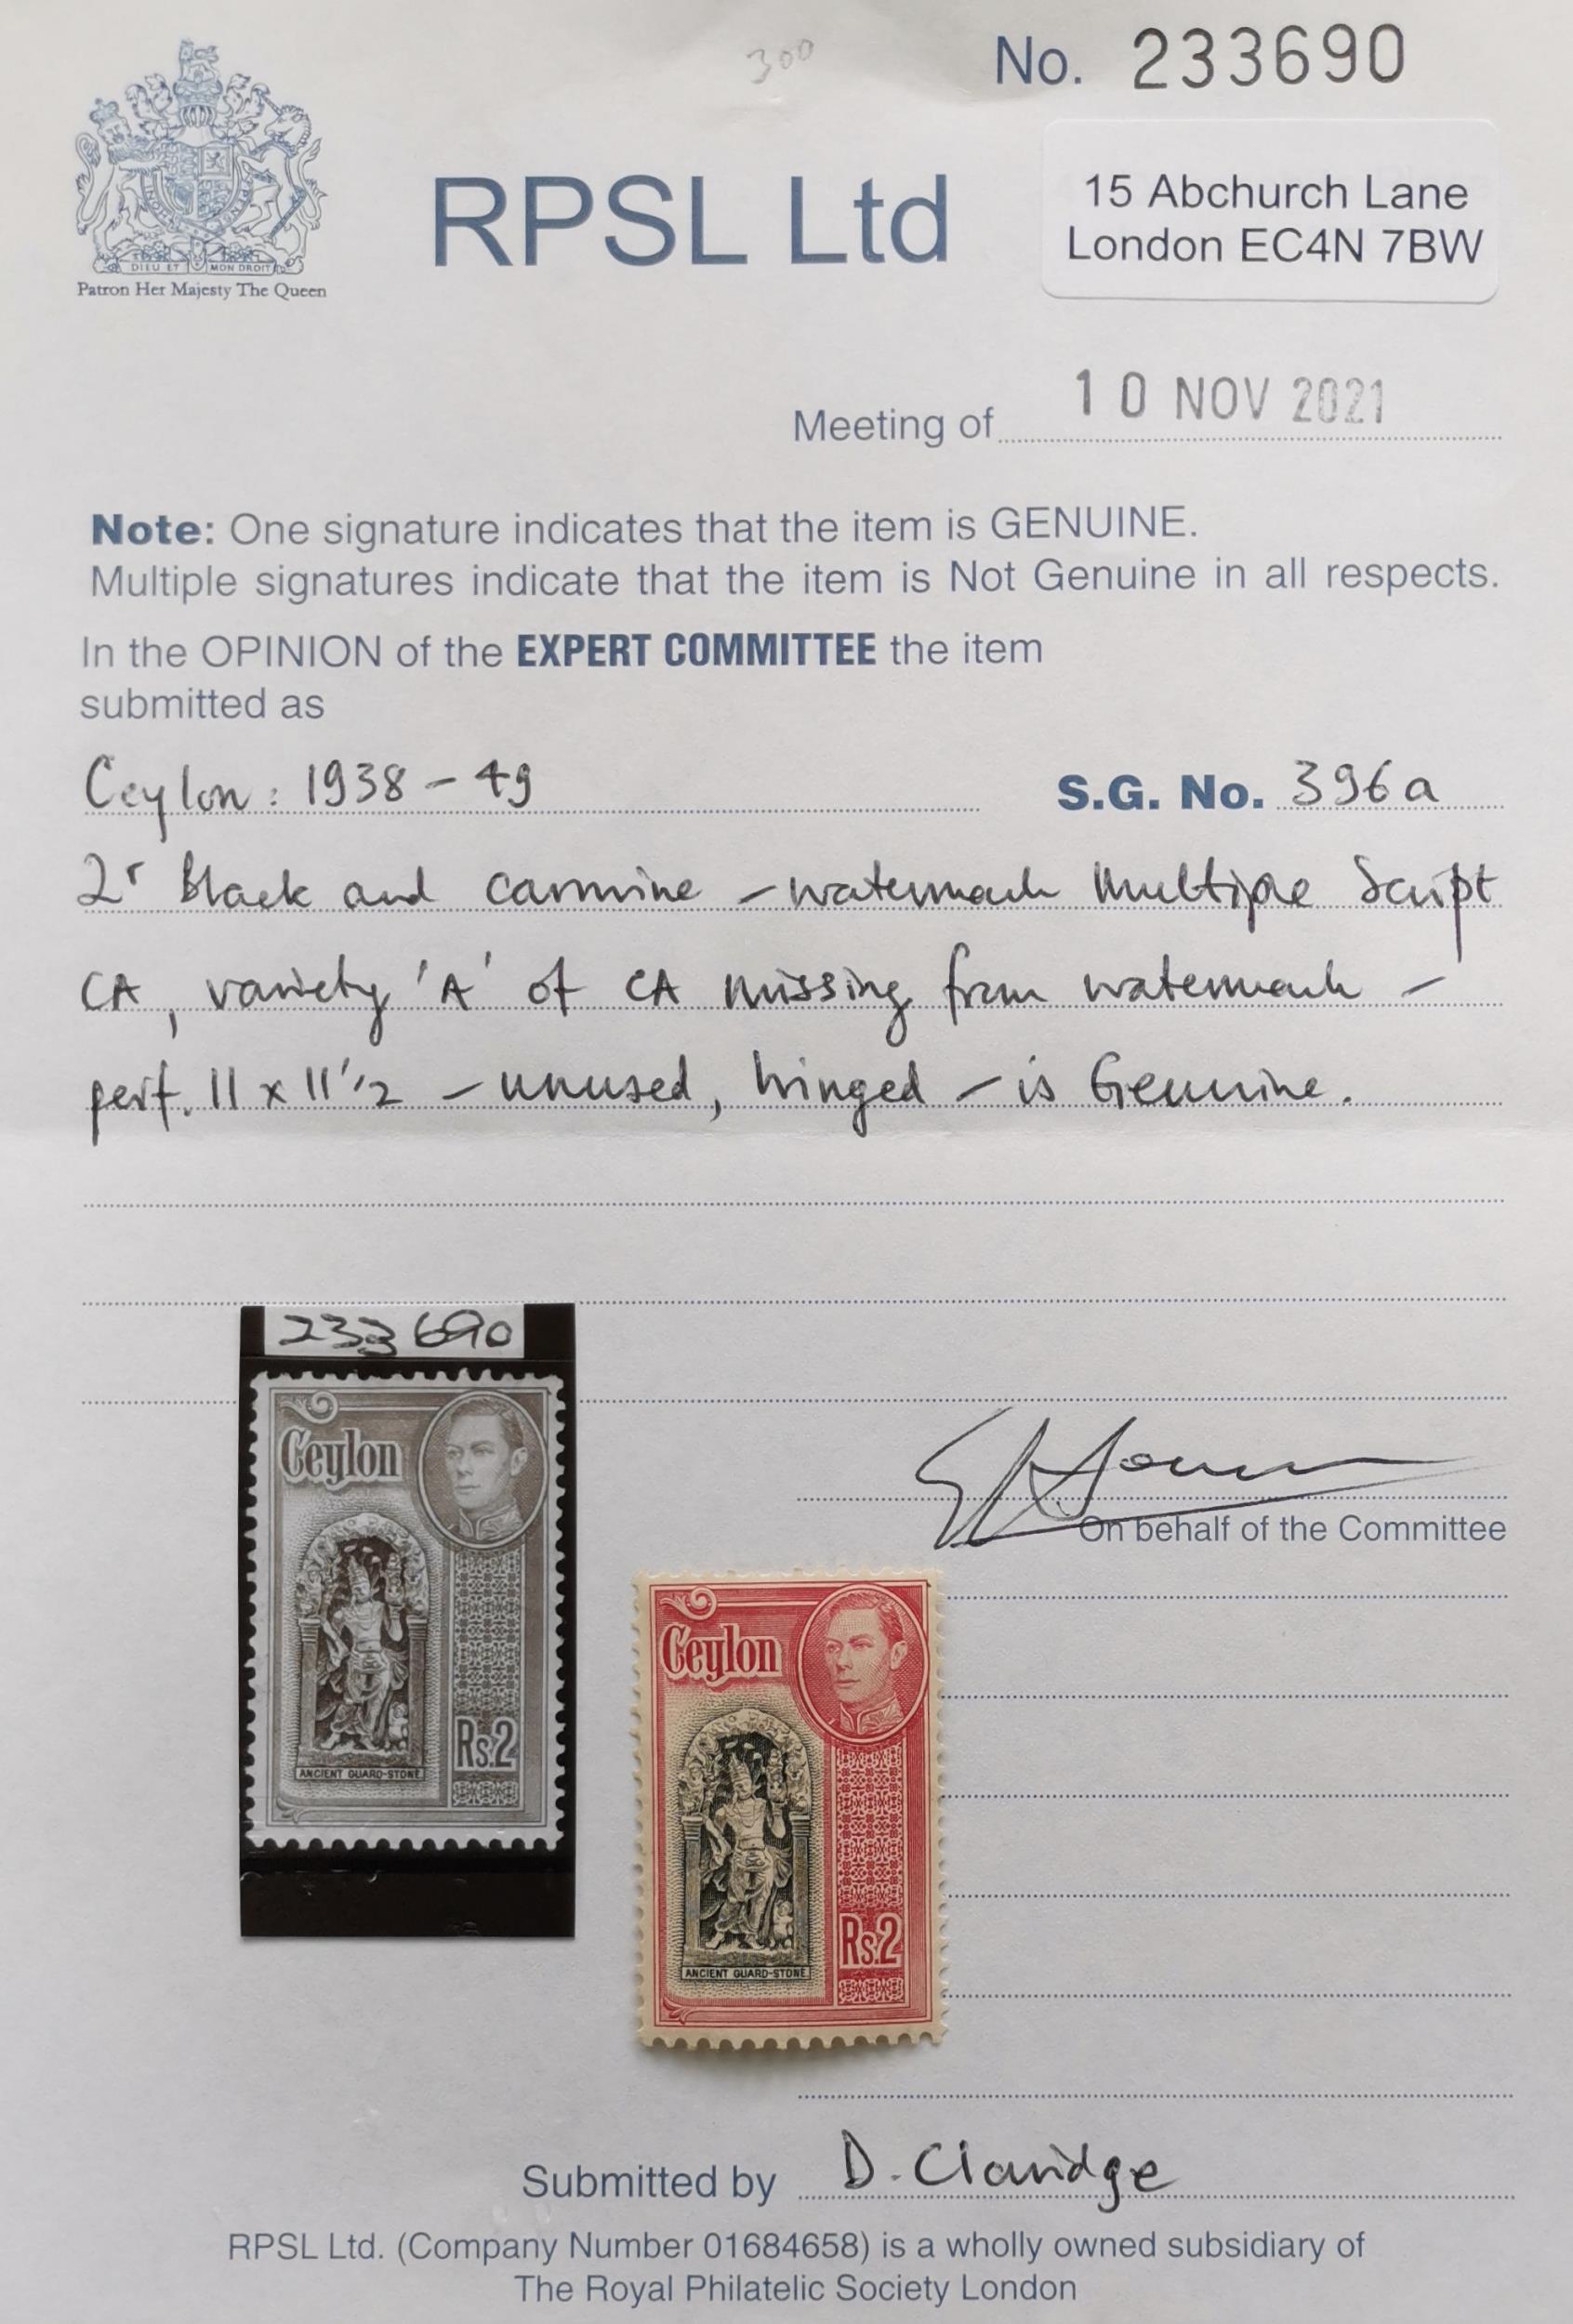 300
No. 233690
DIEU ET MON DROIT
Patron Her Majesty The Queen
RPSL Ltd
15 Abchurch Lane
London EC4N 7BW
Meeting of 10 NOV 2021
Note: One signature indicates that the item is GENUINE.
Multiple signatures indicate that the item is Not Genuine in all respects.
In the OPINION of the EXPERT COMMITTEE the item
submitted as
Ceylon: 1938-49 S.G. No. 396a
2r black and carmine - watermark Multiple Script
CA, variety 'A' of CA missing from watermark -
perf. 11 x 11 1/2 - unused, hinged - is Genuine.
233690
Ceylon
Rs.2
ANCIENT GUARD-STONE
On behalf of the Committee
Ceylon
Rs.2
ANCIENT GUARD-STONE
Submitted by D. Claridge
RPSL Ltd. (Company Number 01684658) is a wholly owned subsidiary of
The Royal Philatelic Society London